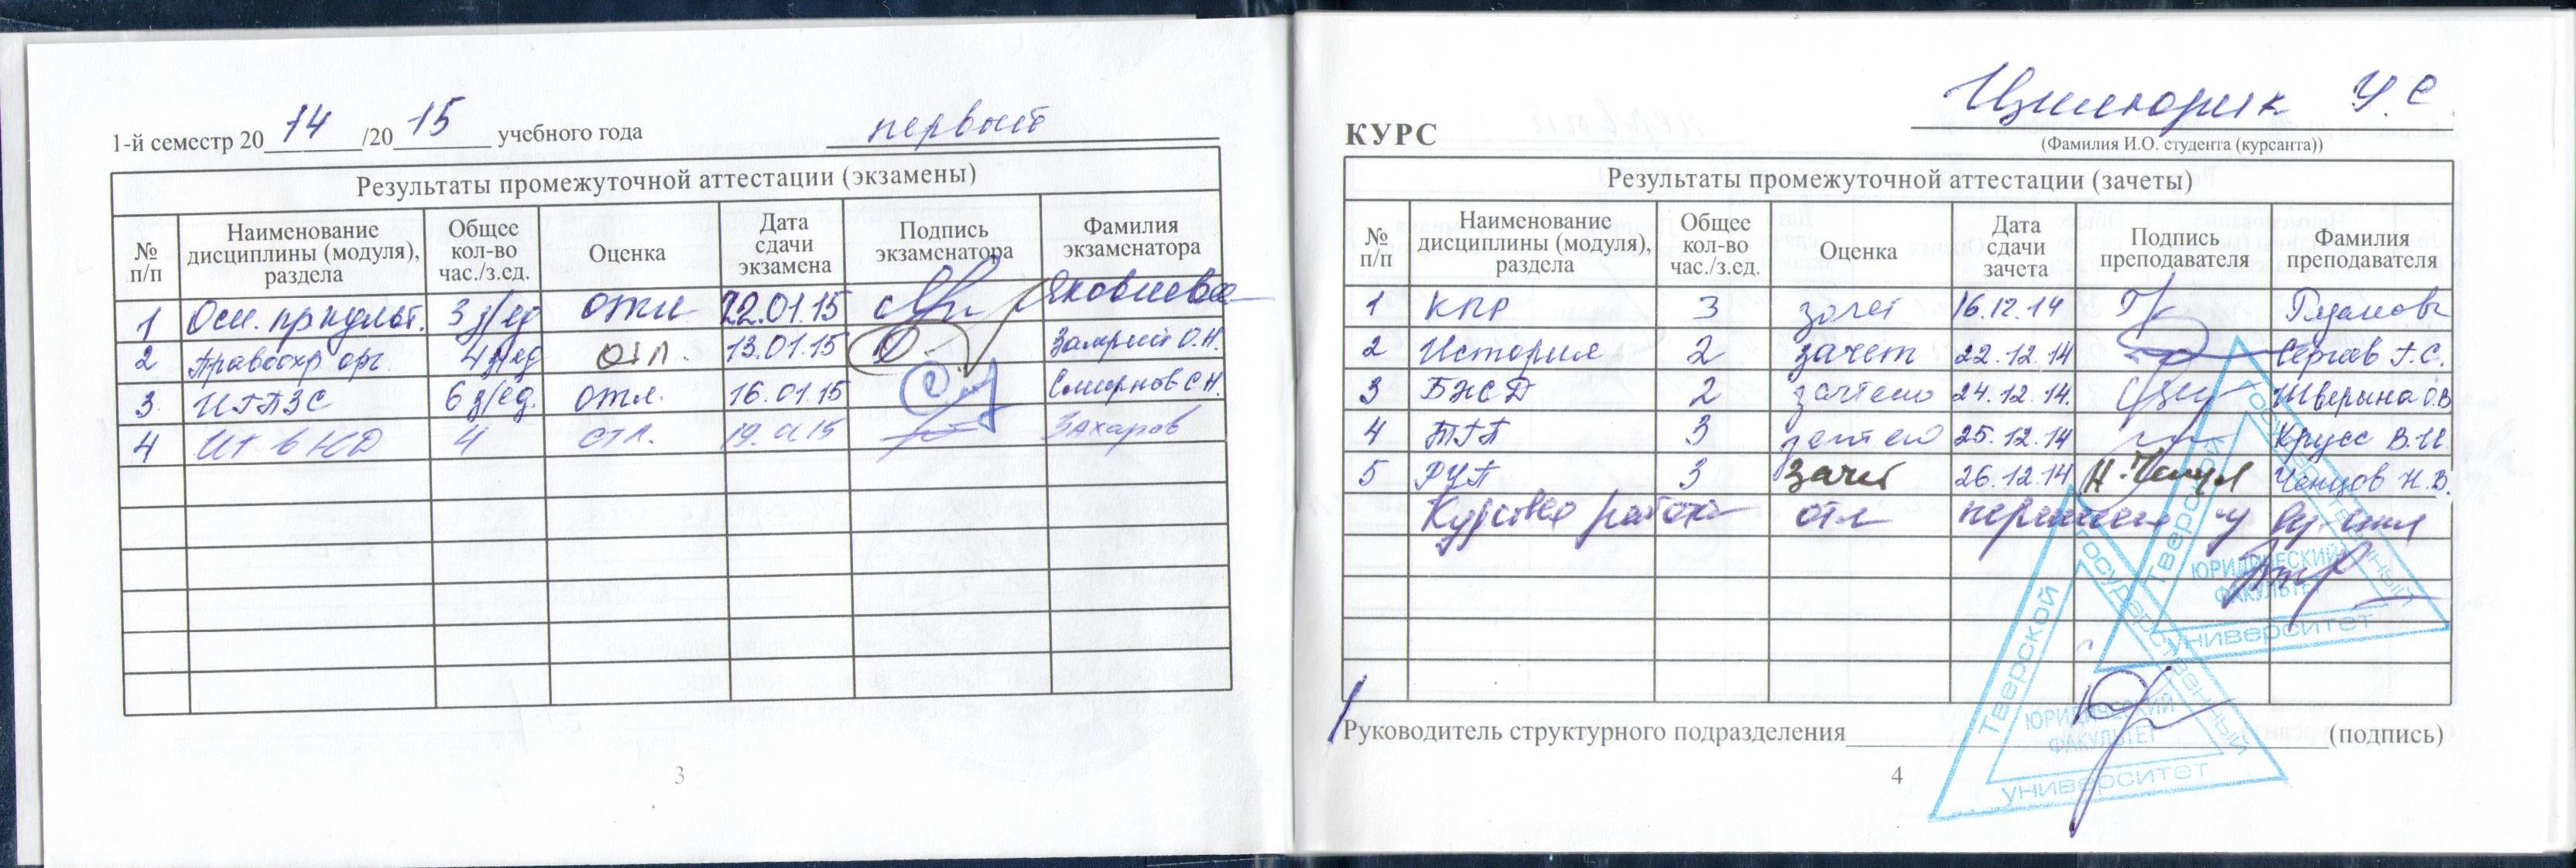 1-й семестр 2014/2015 учебного года первый
Результаты промежуточной аттестации (экзамены)
№ п/п Наименование дисциплины (модуля), раздела Общее кол-во час./з.ед. Оценка Дата сдачи экзамена Подпись экзаменатора Фамилия экзаменатора
1 Осн. пр культ. 3 з/ед отл 22.01.15 Яковлева
2 Правоохр орг. 4 з/ед отл. 13.01.15 Замрий О.Н.
3 ИГПЗС 6 з/ед. отл. 16.01.15 Смирнов С.Н.
4 ИТ в ЮД 4 отл. 19.01.15 Захаров
3
КУРС
У.С.
(Фамилия И.О. студента (курсанта))
Результаты промежуточной аттестации (зачеты)
№ п/п Наименование дисциплины (модуля), раздела Общее кол-во час./з.ед. Оценка Дата сдачи зачета Подпись преподавателя Фамилия преподавателя
1 КПР 3 зачет 16.12.14
2 История 2 зачет 22.12.14 Сергеев Г.С.
3 БЖСД 2 зачтено 24.12.14. Шверина О.В
4 ТГП 3 зачтено 25.12.14 Крусс В.И.
5 РУП 3 зачет 26.12.14 Ченцов Н.В.
Курсовая работа отл
Руководитель структурного подразделения (подпись)
4
Тверской государственный университет
ЮРИДИЧЕСКИЙ
ФАКУЛЬТЕТ
Тверской государственный университет
ЮРИДИЧЕСКИЙ
ФАКУЛЬТЕТ